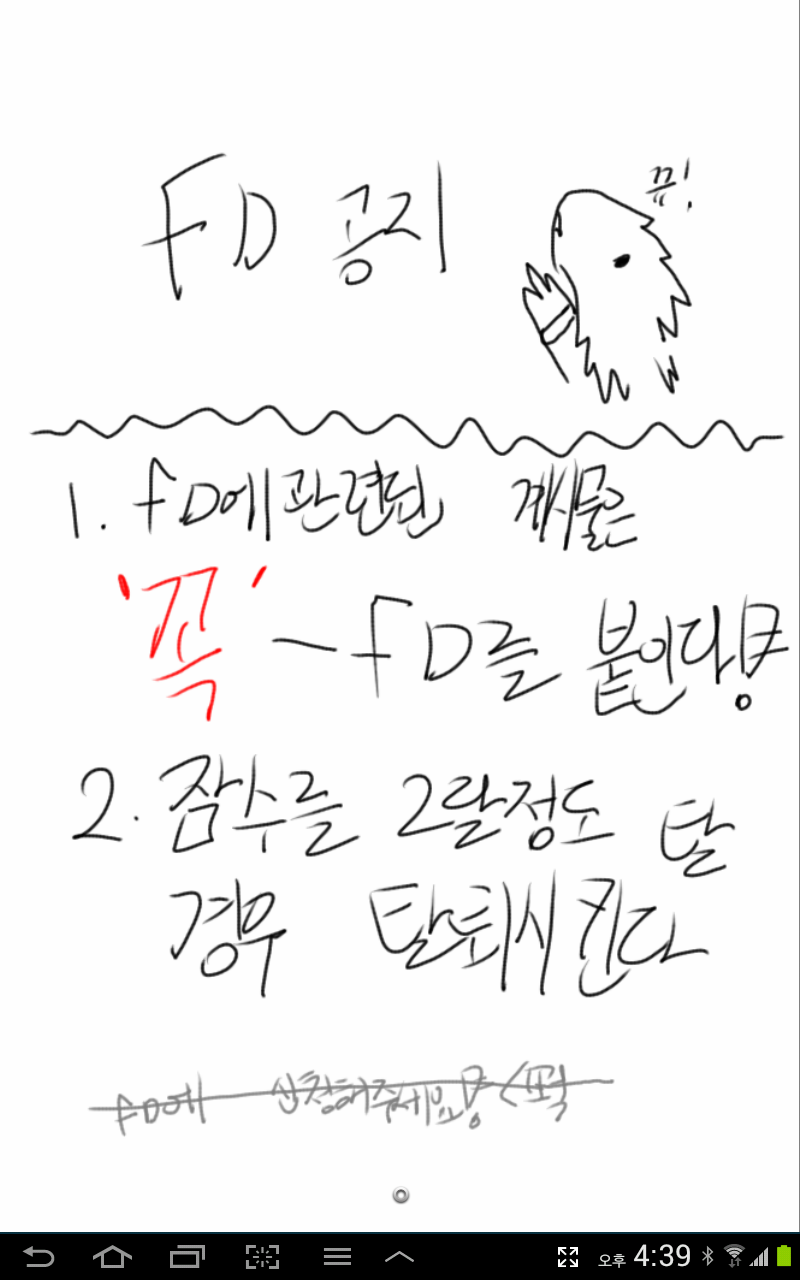 FD 공지
뀨!
1. FD에 관련된 게시물은
'꼭' ㅡFD를 붙이다뿅
2. 잠수를 2달정도 탈
경우 탈퇴시킨다
FD에 신청해주세요뿅<퍽
오후 4:39